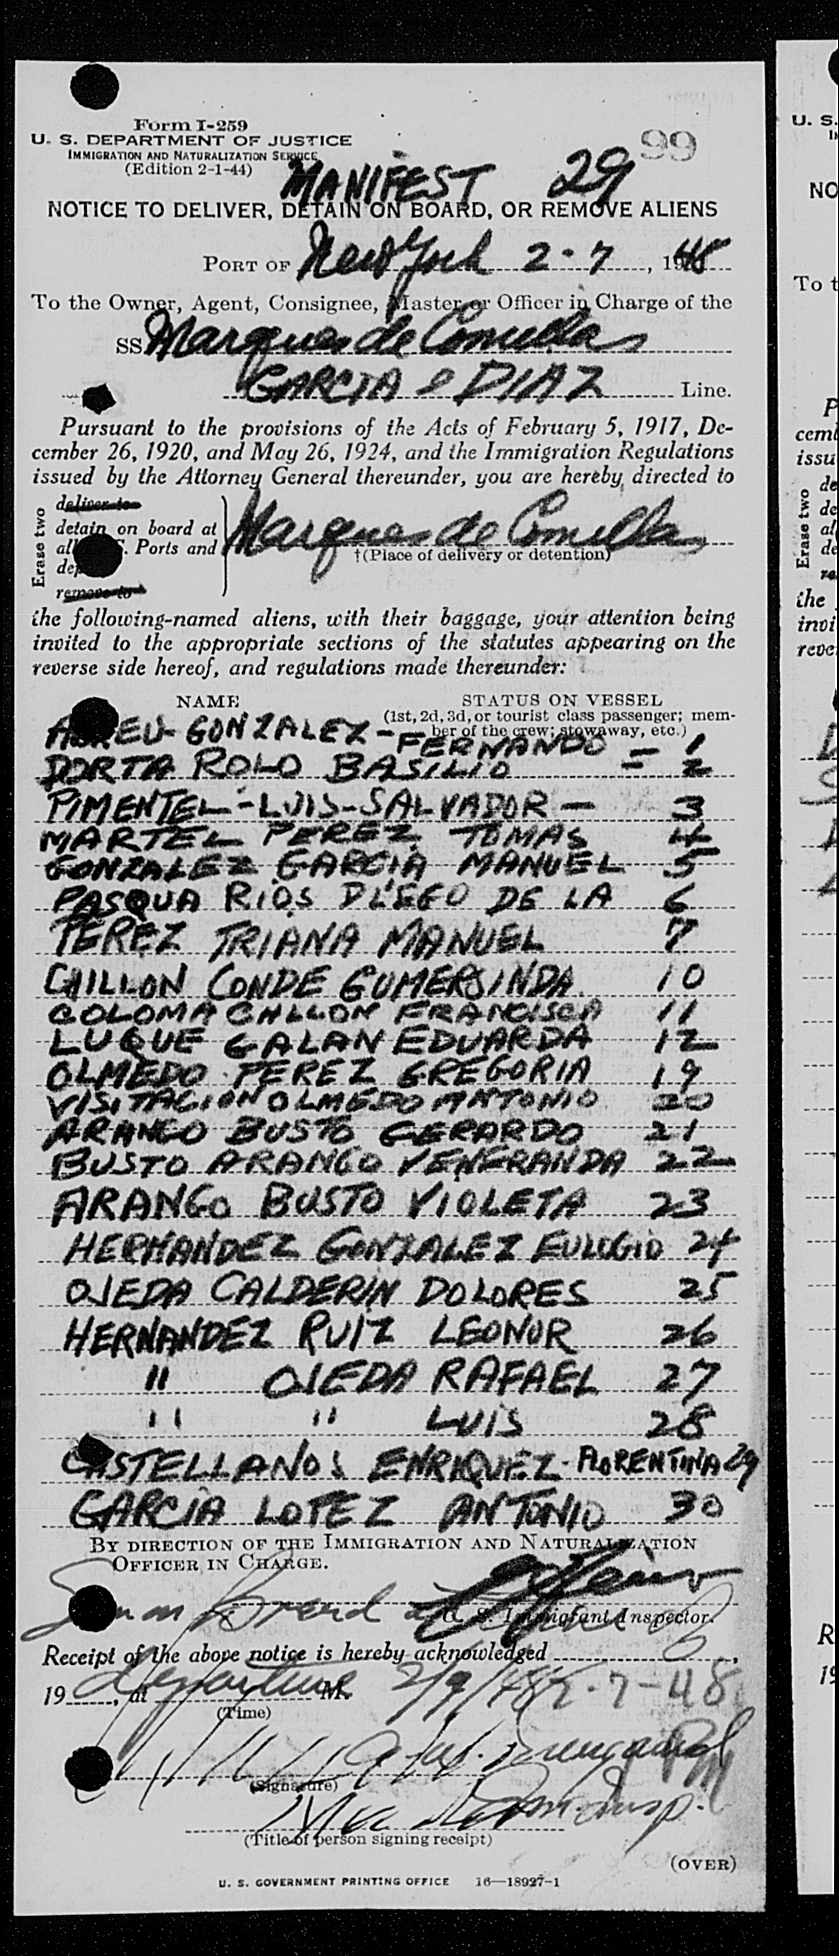 99
Form I-259
U. S. DEPARTMENT OF JUSTICE
IMMIGRATION AND NATURALIZATION SERVICE
(Edition 2-1-44)
MANIFEST 29
NOTICE TO DELIVER, DETAIN ON BOARD, OR REMOVE ALIENS
PORT OF New York 2-7, 1948
To the Owner, Agent, Consignee, Master or Officer in Charge of the
SS Marques de Comillas
GARCIA e DIAZ Line.
Pursuant to the provisions of the Acts of February 5, 1917, De-
cember 26, 1920, and May 26, 1924, and the Immigration Regulations
issued by the Attorney General thereunder, you are hereby directed to
Erase two
deliver to
detain on board at
al Ports and
de
remove to
Marques de Comillas
†(Place of delivery or detention)
the following-named aliens, with their baggage, your attention being
invited to the appropriate sections of the statutes appearing on the
reverse side hereof, and regulations made thereunder:
NAME STATUS ON VESSEL
(1st, 2d, 3d, or tourist class passenger; mem-
ber of the crew; stowaway, etc.)
ABREU-GONZALEZ - FERNANDO - 1
DORTA ROLO BASILIO = 2
PIMENTEL - LUIS - SALVADOR - 3
MARTEL PEREZ TOMAS 4
GONZALEZ GARCIA MANUEL 5
PASQUA RIOS DIEGO DE LA 6
PEREZ TRIANA MANUEL 7
CHILLON CONDE GUMERSINDA 10
COLOMA CHILLON FRANCISCA 11
LUQUE GALAN EDUARDA 12
OLMEDO PEREZ GREGORIA 19
VISITACION OLMEDO ANTONIO 20
ARANGO BUSTO GERARDO 21
BUSTO ARANGO VENERANDA 22
ARANGO BUSTO VIOLETA 23
HERNANDEZ GONZALEZ EULOGIO 24
OJEDA CALDERIN DOLORES 25
HERNANDEZ RUIZ LEONOR 26
" OJEDA RAFAEL 27
" " LUIS 28
CASTELLANOS ENRIQUEZ - FLORENTINA 29
GARCIA LOPEZ ANTONIO 30
BY DIRECTION OF THE IMMIGRATION AND NATURALIZATION
OFFICER IN CHARGE.
U. S. Immigrant Inspector.
Receipt of the above notice is hereby acknowledged
19 , at departure M. 2/9/48 2-7-48
(Time)
PM
(Signature)
(Title of person signing receipt)
(OVER)
U. S. GOVERNMENT PRINTING OFFICE 16—18927-1